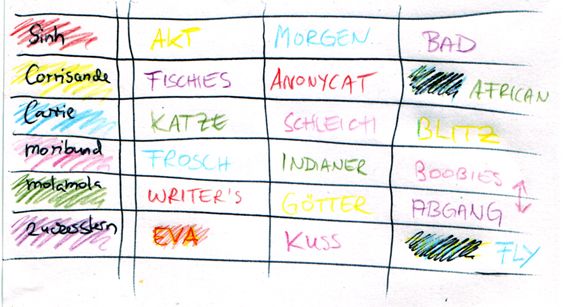 Sinh AKT MORGEN BAD
Corrisande FISCHIES ANONYCAT AFRICAN
Carrie KATZE SCHLEICHI BLITZ
moribund FROSCH INDIANER BOOBIES
motamola WRITER'S GÖTTER ABGANG
EVA KUSS FLY